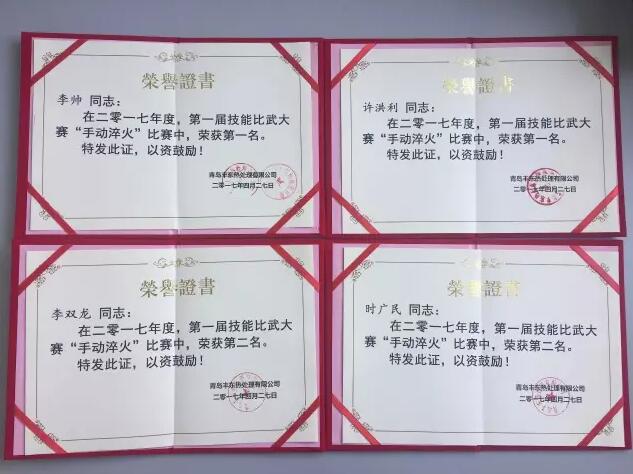 榮譽證書
李帅 同志：
在二零一七年度，第一届技能比武大
赛“手动淬火”比赛中，荣获第一名。
特发此证，以资鼓励！
青岛丰东热处理有限公司
二零一七年四月二七日
榮譽證書
许洪利 同志：
在二零一七年度，第一届技能比武大
赛“手动淬火”比赛中，荣获第一名。
特发此证，以资鼓励！
青岛丰东热处理有限公司
二零一七年四月二七日
榮譽證書
李双龙 同志：
在二零一七年度，第一届技能比武大
赛“手动淬火”比赛中，荣获第二名。
特发此证，以资鼓励！
青岛丰东热处理有限公司
二零一七年四月二七日
榮譽證書
时广民 同志：
在二零一七年度，第一届技能比武大
赛“手动淬火”比赛中，荣获第二名。
特发此证，以资鼓励！
青岛丰东热处理有限公司
二零一七年四月二七日